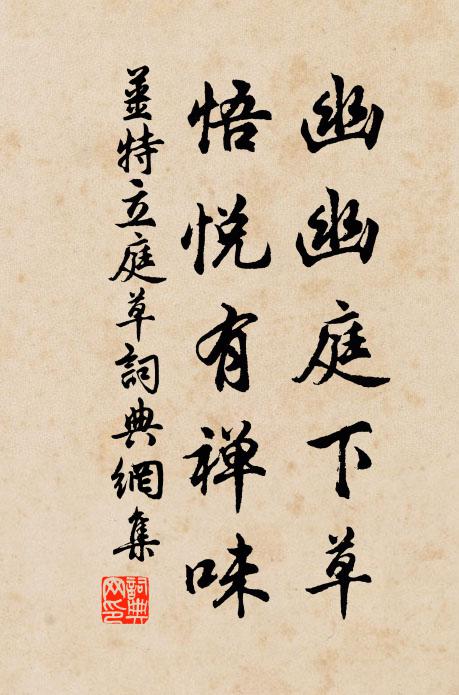 幽幽庭下草
悟悦有禅味
姜特立庭草詞典網集
詞典網印